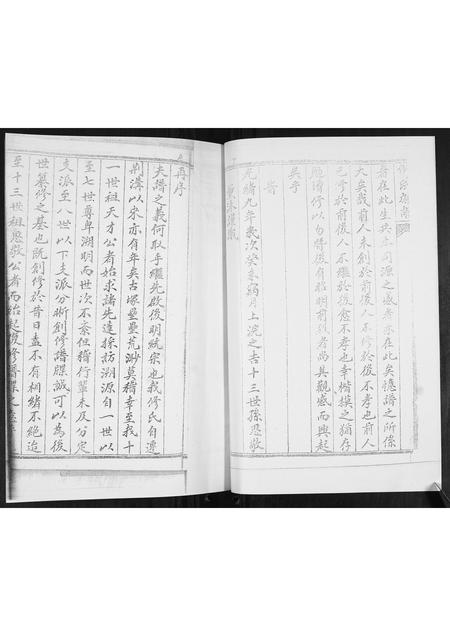 者在此生矣生同源之感者亦在此矣憶譜之所係
大矣哉前人未創於前後人不修於後不孝也前人
已修於前後人不繼於後愈不孝也幸楷模之猶存
譜修以勿替後有昭明前後者尚其觀感而興起
矣乎
旹
光緒九年歲次癸未月上浣之吉十三世孫懋敬
再序
夫譜之義何取乎繼先啟後明統宗也我修氏自遷
荊溝以來亦有年矣古塚壘壘荒渺莫稽幸至我十
一世祖天才公者始求諸先達採訪溯源自一世以
至七世尊卑溯明而世次不紊但稽行輩未及分定
支派至八世以下支派分晰創修譜牒誠可以為後
世纂修之基也既創修於昔日盍不有相續不絕迨
至十三世祖懋敬公者而始起復修譜牒之